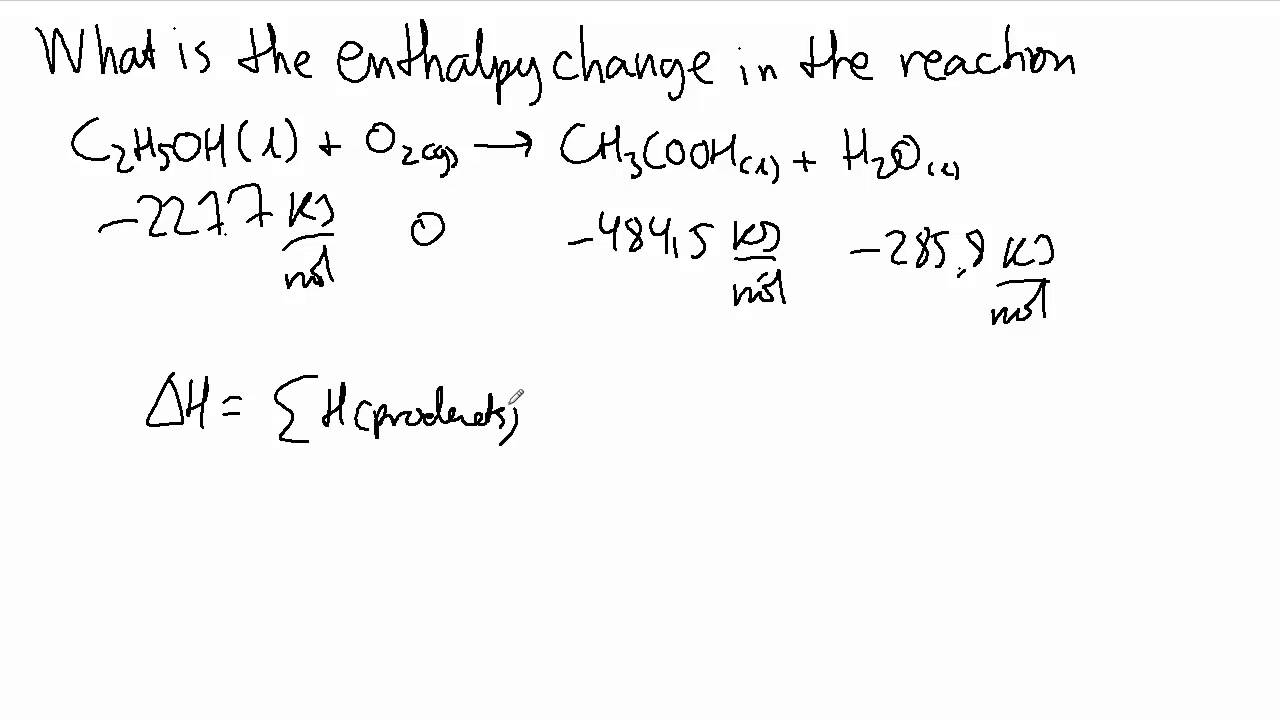 What is the enthalpy change in the reaction
C₂H₅OH(l) + O₂(g) → CH₃COOH(l) + H₂O(l)
-227.7 kJ/mol 0 -484,5 kJ/mol -285,8 kJ/mol
ΔH = Σ H(products)